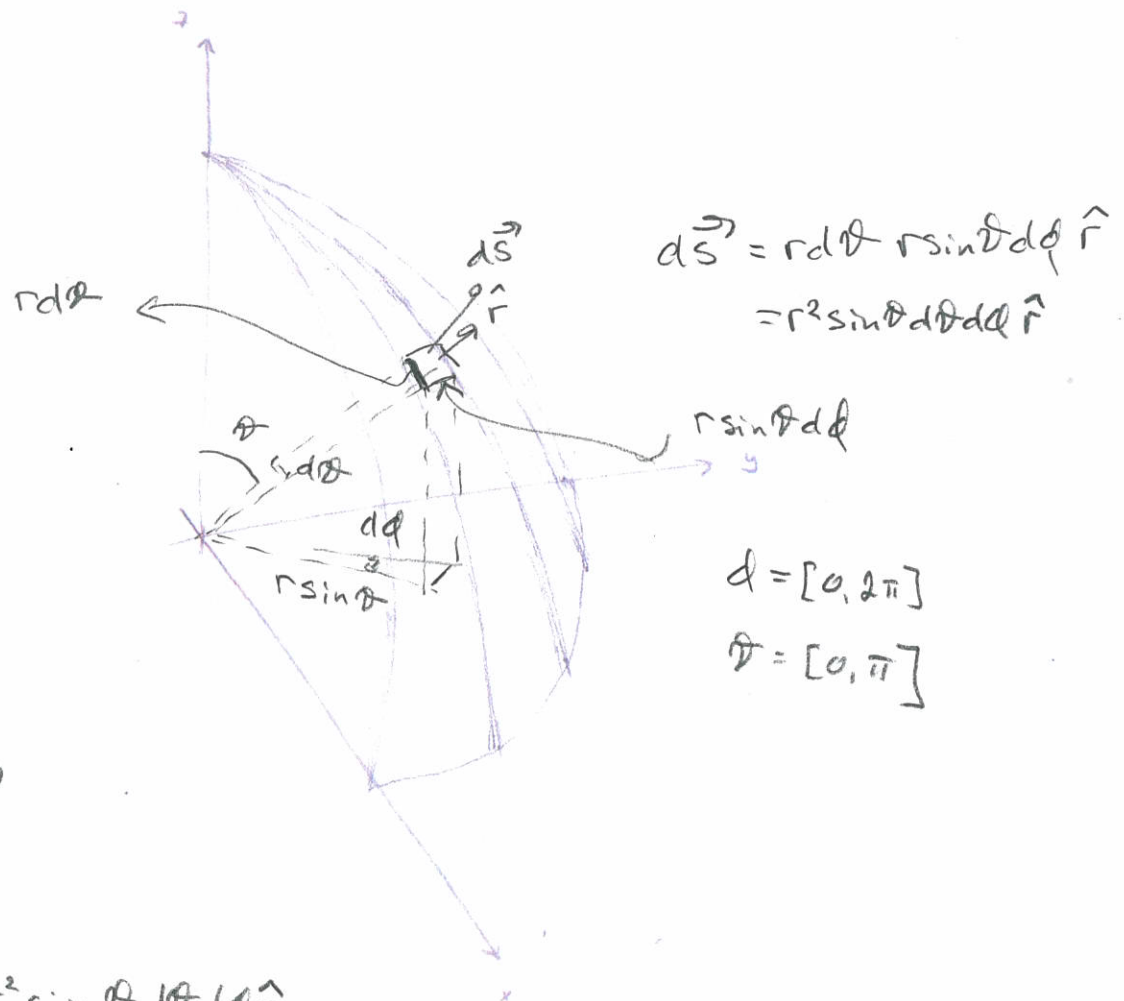 z
dS⃗
r̂
dS⃗ = r dϑ r sinϑ dϕ r̂
= r² sinϑ dϑ dϕ r̂
r dϑ
r sinϑ dϕ
y
ϑ
dϑ
dϕ
r sinϑ
ϕ = [0, 2π]
ϑ = [0, π]
² sinϑ dϑ dϕ r̂
x